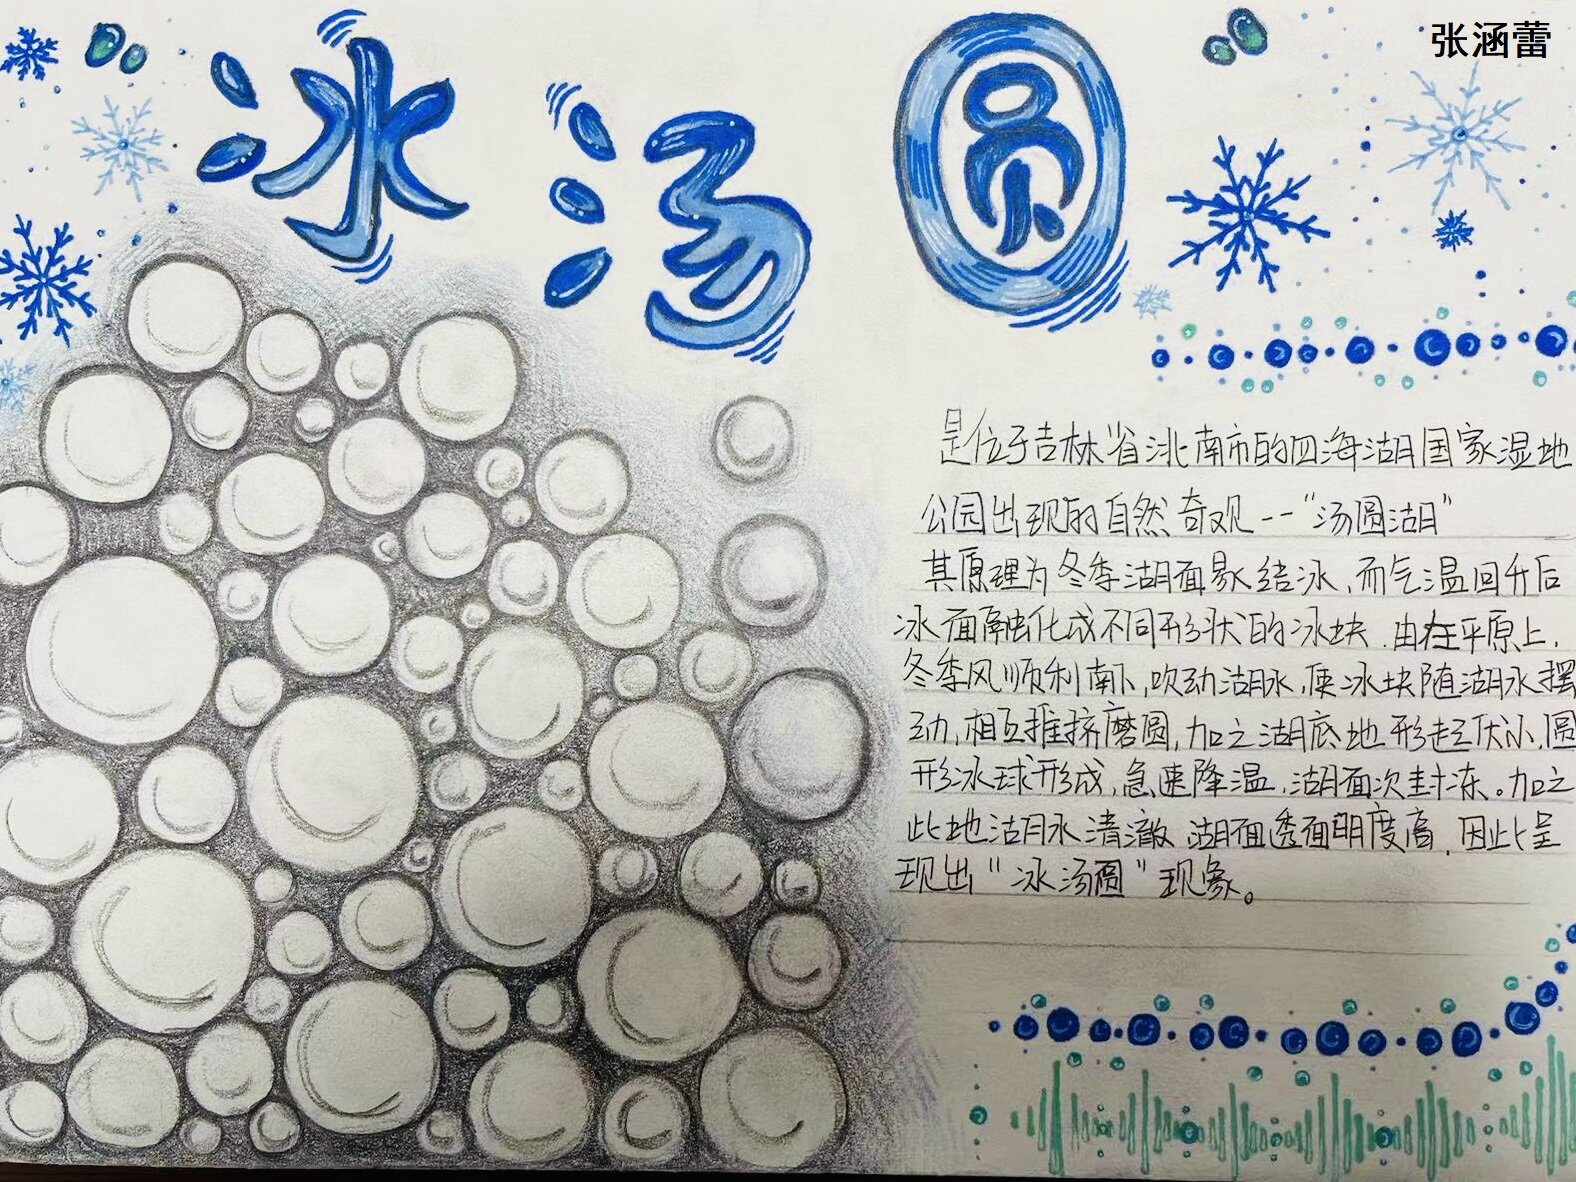 张涵蕾
冰汤圆
是位于吉林省洮南市的四海湖国家湿地
公园出现的自然奇观--“汤圆湖”
其原理为冬季湖面易结冰，而气温回升后
冰面融化成不同形状的冰块．由在平原上，
冬季风顺利南下，吹动湖水，使冰块随湖水摆
动，相互推挤磨圆，加之湖底地形起伏小，圆
形冰球形成，急速降温，湖面次封冻。加之
此地湖水清澈 湖面透面明度高，因此呈
现出“冰汤圆”现象。